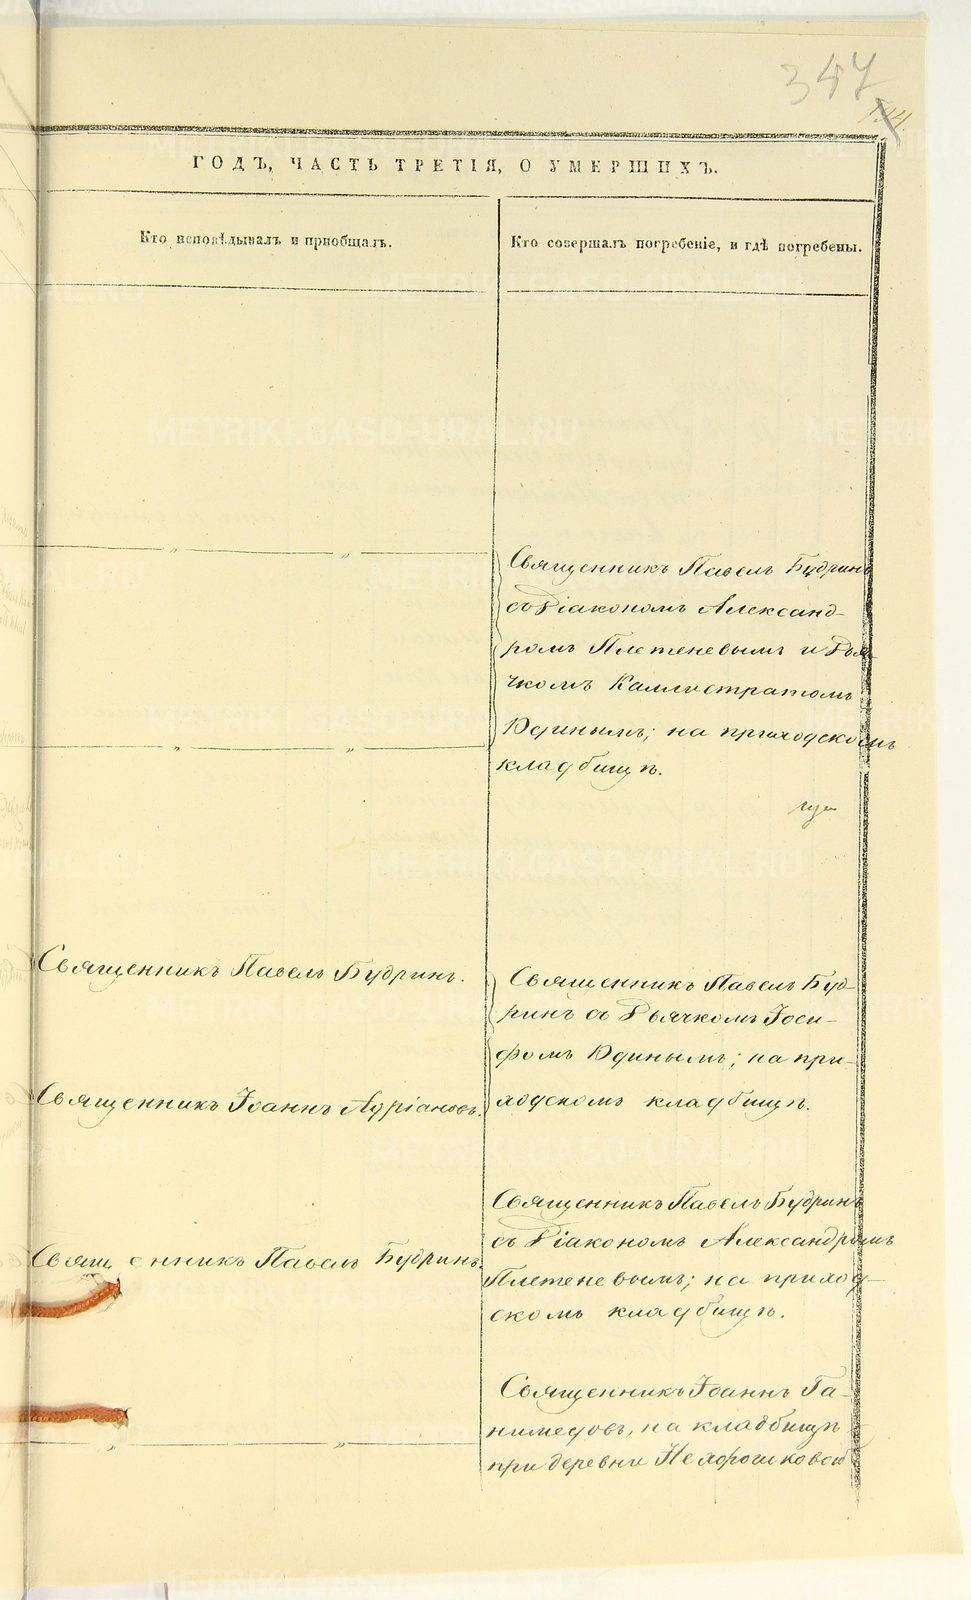 347
ГОДЪ, ЧАСТЬ ТРЕТІЯ, О УМЕРШИХЪ.
Кто исповѣдывалъ и пріобщалъ.
Кто совершалъ погребеніе, и гдѣ погребены.
Священникъ Павелъ Будринъ
съ Діакономъ Александ-
ромъ Плетеневымъ и Дья-
чкомъ Каллистратомъ
Юдинымъ; на приходскомъ
кладбищѣ.
Священникъ Павелъ Будринъ.
Священникъ Павелъ Буд-
ринъ съ Дьячкомъ Іоси-
фомъ Юдинымъ; на при-
ходскомъ кладбищѣ.
Священникъ Іоаннъ Адріановъ.
Священникъ Павелъ Будринъ
съ Діакономъ Александромъ
Плетеневымъ; на приход-
скомъ кладбищѣ.
Священникъ Павелъ Будринъ.
Священникъ Іоаннъ Га-
нимедовъ, на кладбищѣ
при деревни
METRIKI.GASO-URAL.RU